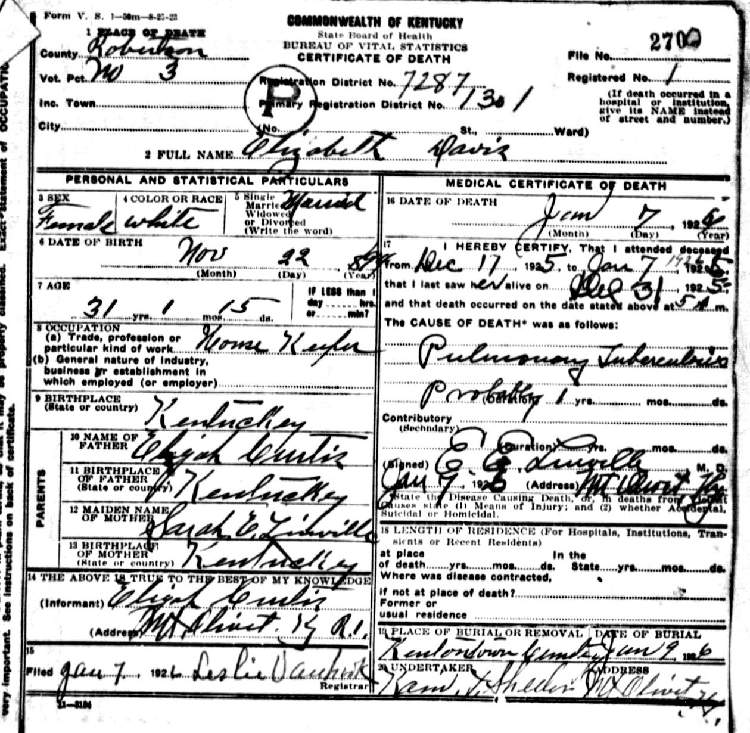 Form V. S. 1-50m-8-27-23
COMMONWEALTH OF KENTUCKY
State Board of Health
BUREAU OF VITAL STATISTICS
CERTIFICATE OF DEATH
1 PLACE OF DEATH
County Robertson
File No. 2700
Vot. Pct. No 3
Registration District No. 7287
Registered No. 1
Inc. Town
P
Primary Registration District No. 1301
(If death occurred in a
hospital or institution,
give its NAME instead
of street and number.)
City
(No. St., Ward)
2 FULL NAME Elizabeth Davis
PERSONAL AND STATISTICAL PARTICULARS
3 SEX
Female
4 COLOR OR RACE
white
5 Single
Married
Widowed
or Divorced
(Write the word)
Married
6 DATE OF BIRTH
Nov 22
(Month) (Day) (Year)
7 AGE
31 yrs. 1 mos. 15 ds.
IF LESS than 1
day hrs.
or min?
8 OCCUPATION
(a) Trade, profession or
particular kind of work House Keeper
(b) General nature of industry,
business or establishment in
which employed (or employer)
9 BIRTHPLACE
(State or country)
Kentuckey
PARENTS
10 NAME OF
FATHER
Elijah Curtis
11 BIRTHPLACE
OF FATHER
(State or country)
Kentuckey
12 MAIDEN NAME
OF MOTHER
Sarah E Linville
13 BIRTHPLACE
OF MOTHER
(State or country)
Kentuckey
14 THE ABOVE IS TRUE TO THE BEST OF MY KNOWLEDGE
(Informant) Elijah Curtis
(Address) Mt Olivet Ky R.1.
15
Filed Jan 7 1926 Leslie
Registrar
11-3184
MEDICAL CERTIFICATE OF DEATH
16 DATE OF DEATH
Jan 7, 1926
(Month) (Day) (Year)
17
I HEREBY CERTIFY, That I attended deceased
from Dec 17, 1925, to Jan 7 1926
that I last saw her alive on Dec 31 1925
and that death occurred on the date stated above at 5 A m.
The CAUSE OF DEATH* was as follows:
Pulmonary Tuberculosis
Probably (Duration) 1 yrs. mos. ds.
Contributory
(Secondary)
(Duration) yrs. mos. ds.
(Signed) E. E. Linville M. D.
Jan 9. 1926 (Address) Mt Olivet Ky
*State the Disease Causing Death, or, in deaths from Violent
Causes state (1) Means of Injury; and (2) whether Accidental,
Suicidal or Homicidal.
18 LENGTH OF RESIDENCE (For Hospitals, Institutions, Tran-
sients or Recent Residents)
at place In the
of death yrs. mos. ds. State yrs. mos. ds.
Where was disease contracted,
if not at place of death?
Former or
usual residence
19 PLACE OF BURIAL OR REMOVAL DATE OF BURIAL
Kentontown Cemetery Jan 9 1926
20 UNDERTAKER ADDRESS
Mt Olivet Ky
Exact statement of OCCUPATI
very important. See instructions on back of certificate.